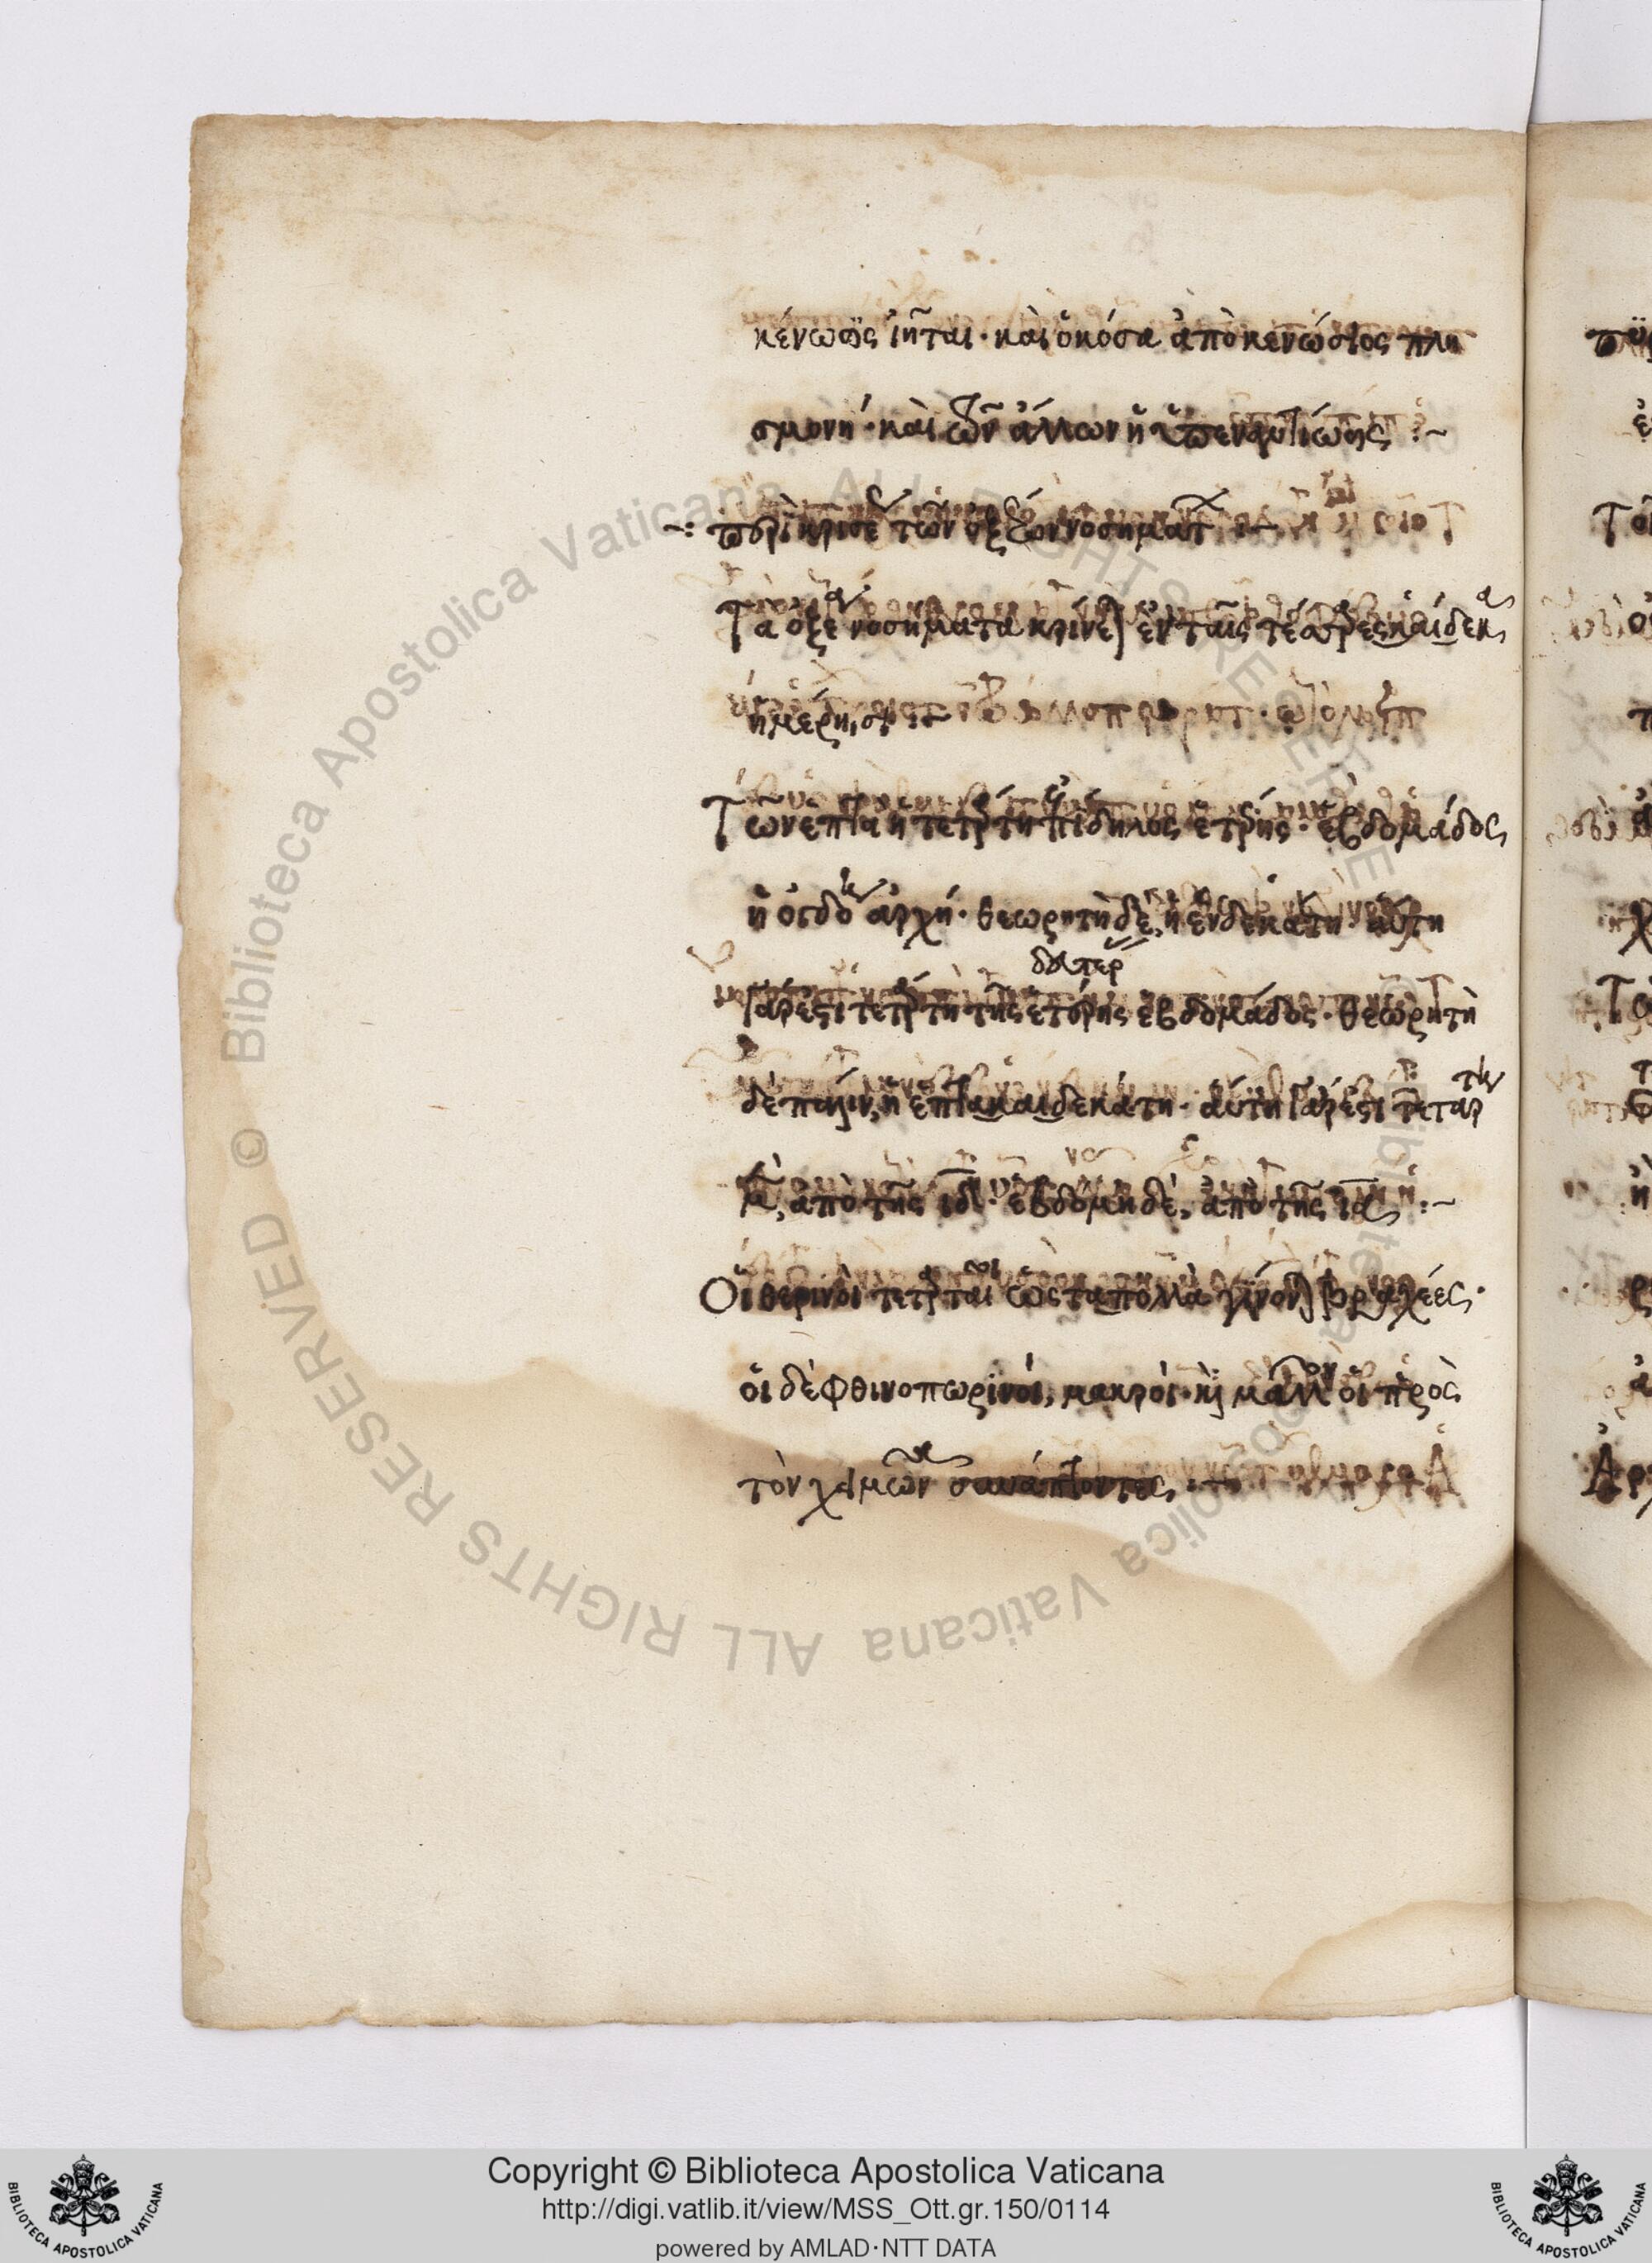 κένωσις ἰῆται· καὶ ὁκόσα ἀπὸ κενώσιος πλη
σμονή· καὶ τῶν ἄλλων ἡ ὑπεναντίωσις :~
-: περὶ κρίσε τῶν ὀξέων νοσημάτ :~
Τὰ ὀξέ νοσήματα κρίνεται ἐν ταῖς τέσσαρεσκαίδεκα
ἡμέρῃσι :~
Τῶν ἑπτὰ ἡ τετάρτη ἐπίδηλος· ἑτέρης· ἑβδομάδος
ἡ ὀγδόη ἀρχή· θεωρητὴ δὲ, ἡ ἑνδεκάτη· αὕτη
δευτέρ
γάρ ἐστι τετάρτη τῆς ἑτέρης ἑβδομάδος· θεωρητὴ
δὲ πάλιν, ἡ ἑπτακαιδεκάτη· αὕτη γάρ ἐστι τετάρτη
μὲν, ἀπὸ τῆς ιδ· ἑβδόμη δὲ, ἀπὸ τῆς ια :~
Οἱ θερινοὶ τεταρταῖοι ὡς τὰ πολλὰ γίνονται βραχέες·
οἱ δὲ φθινοπωρινοί, μακροί· καὶ μᾶλλον οἱ πρὸς
τὸν χειμῶνα συνάπτοντες :~
Copyright © Biblioteca Apostolica Vaticana
http://digi.vatlib.it/view/MSS_Ott.gr.150/0114
powered by AMLAD·NTT DATA
© Biblioteca Apostolica Vaticana ALL RIGHTS RESERVED
© Biblioteca Apostolica Vaticana ALL RIGHTS RESERVED
BIBLIOTECA APOSTOLICA VATICANA
BIBLIOTECA APOSTOLICA VATICANA